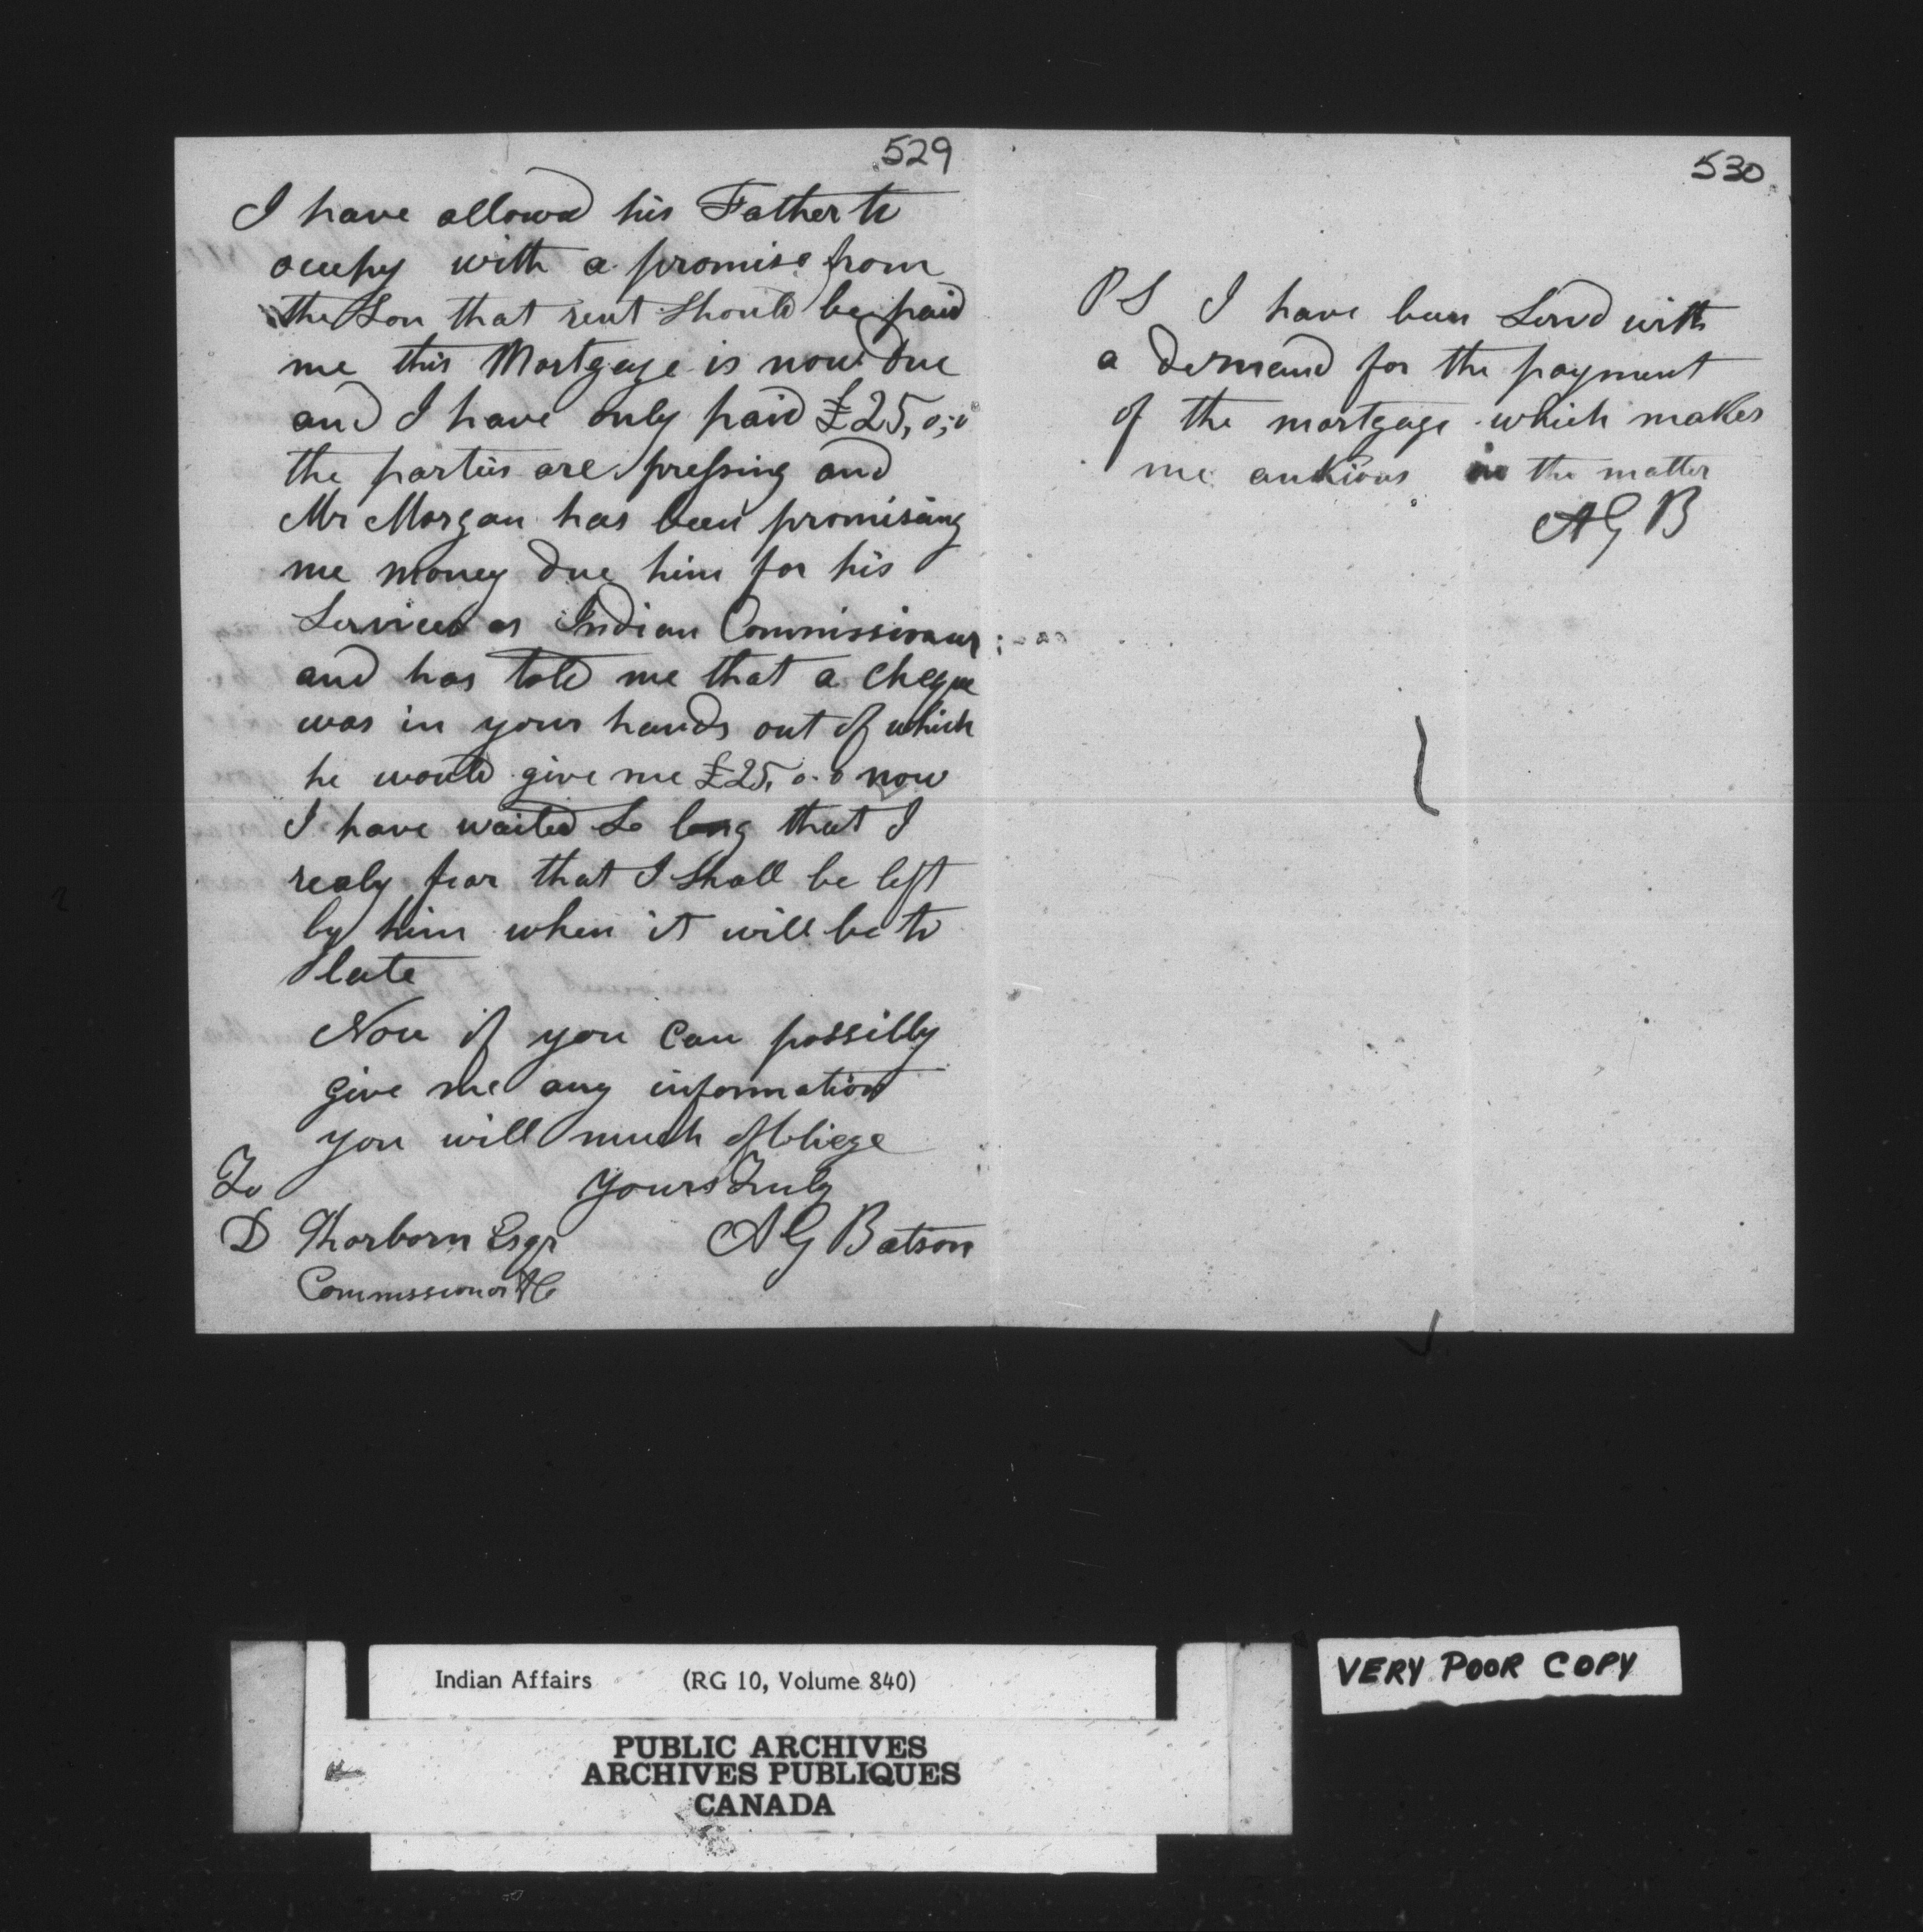 529
I have allowed his Father to
ocupy with a promise from
the Son that rent Should be paid
me this Mortgage is now due
and I have only paid £25,0,0
the parties are pressing and
Mr Morgan has been promising
me money due him for his
Services as Indian Commissioner
and has told me that a cheque
was in your hands out of which
he would give me £25,0.0 now
I have waited So long that I
realy fear that I Shall be left
by him when it will be to
late
Now if you can possibly
give me any information
you will much obliege
Yours Truly
A G Batson
To
D Thorborn Esqr
Commissioner &c
530
PS I have been Servd with
a demand for the payment
of the mortgage which makes
me ankious in the matter
A G B
Indian Affairs (RG 10, Volume 840)
PUBLIC ARCHIVES
ARCHIVES PUBLIQUES
CANADA
VERY POOR COPY